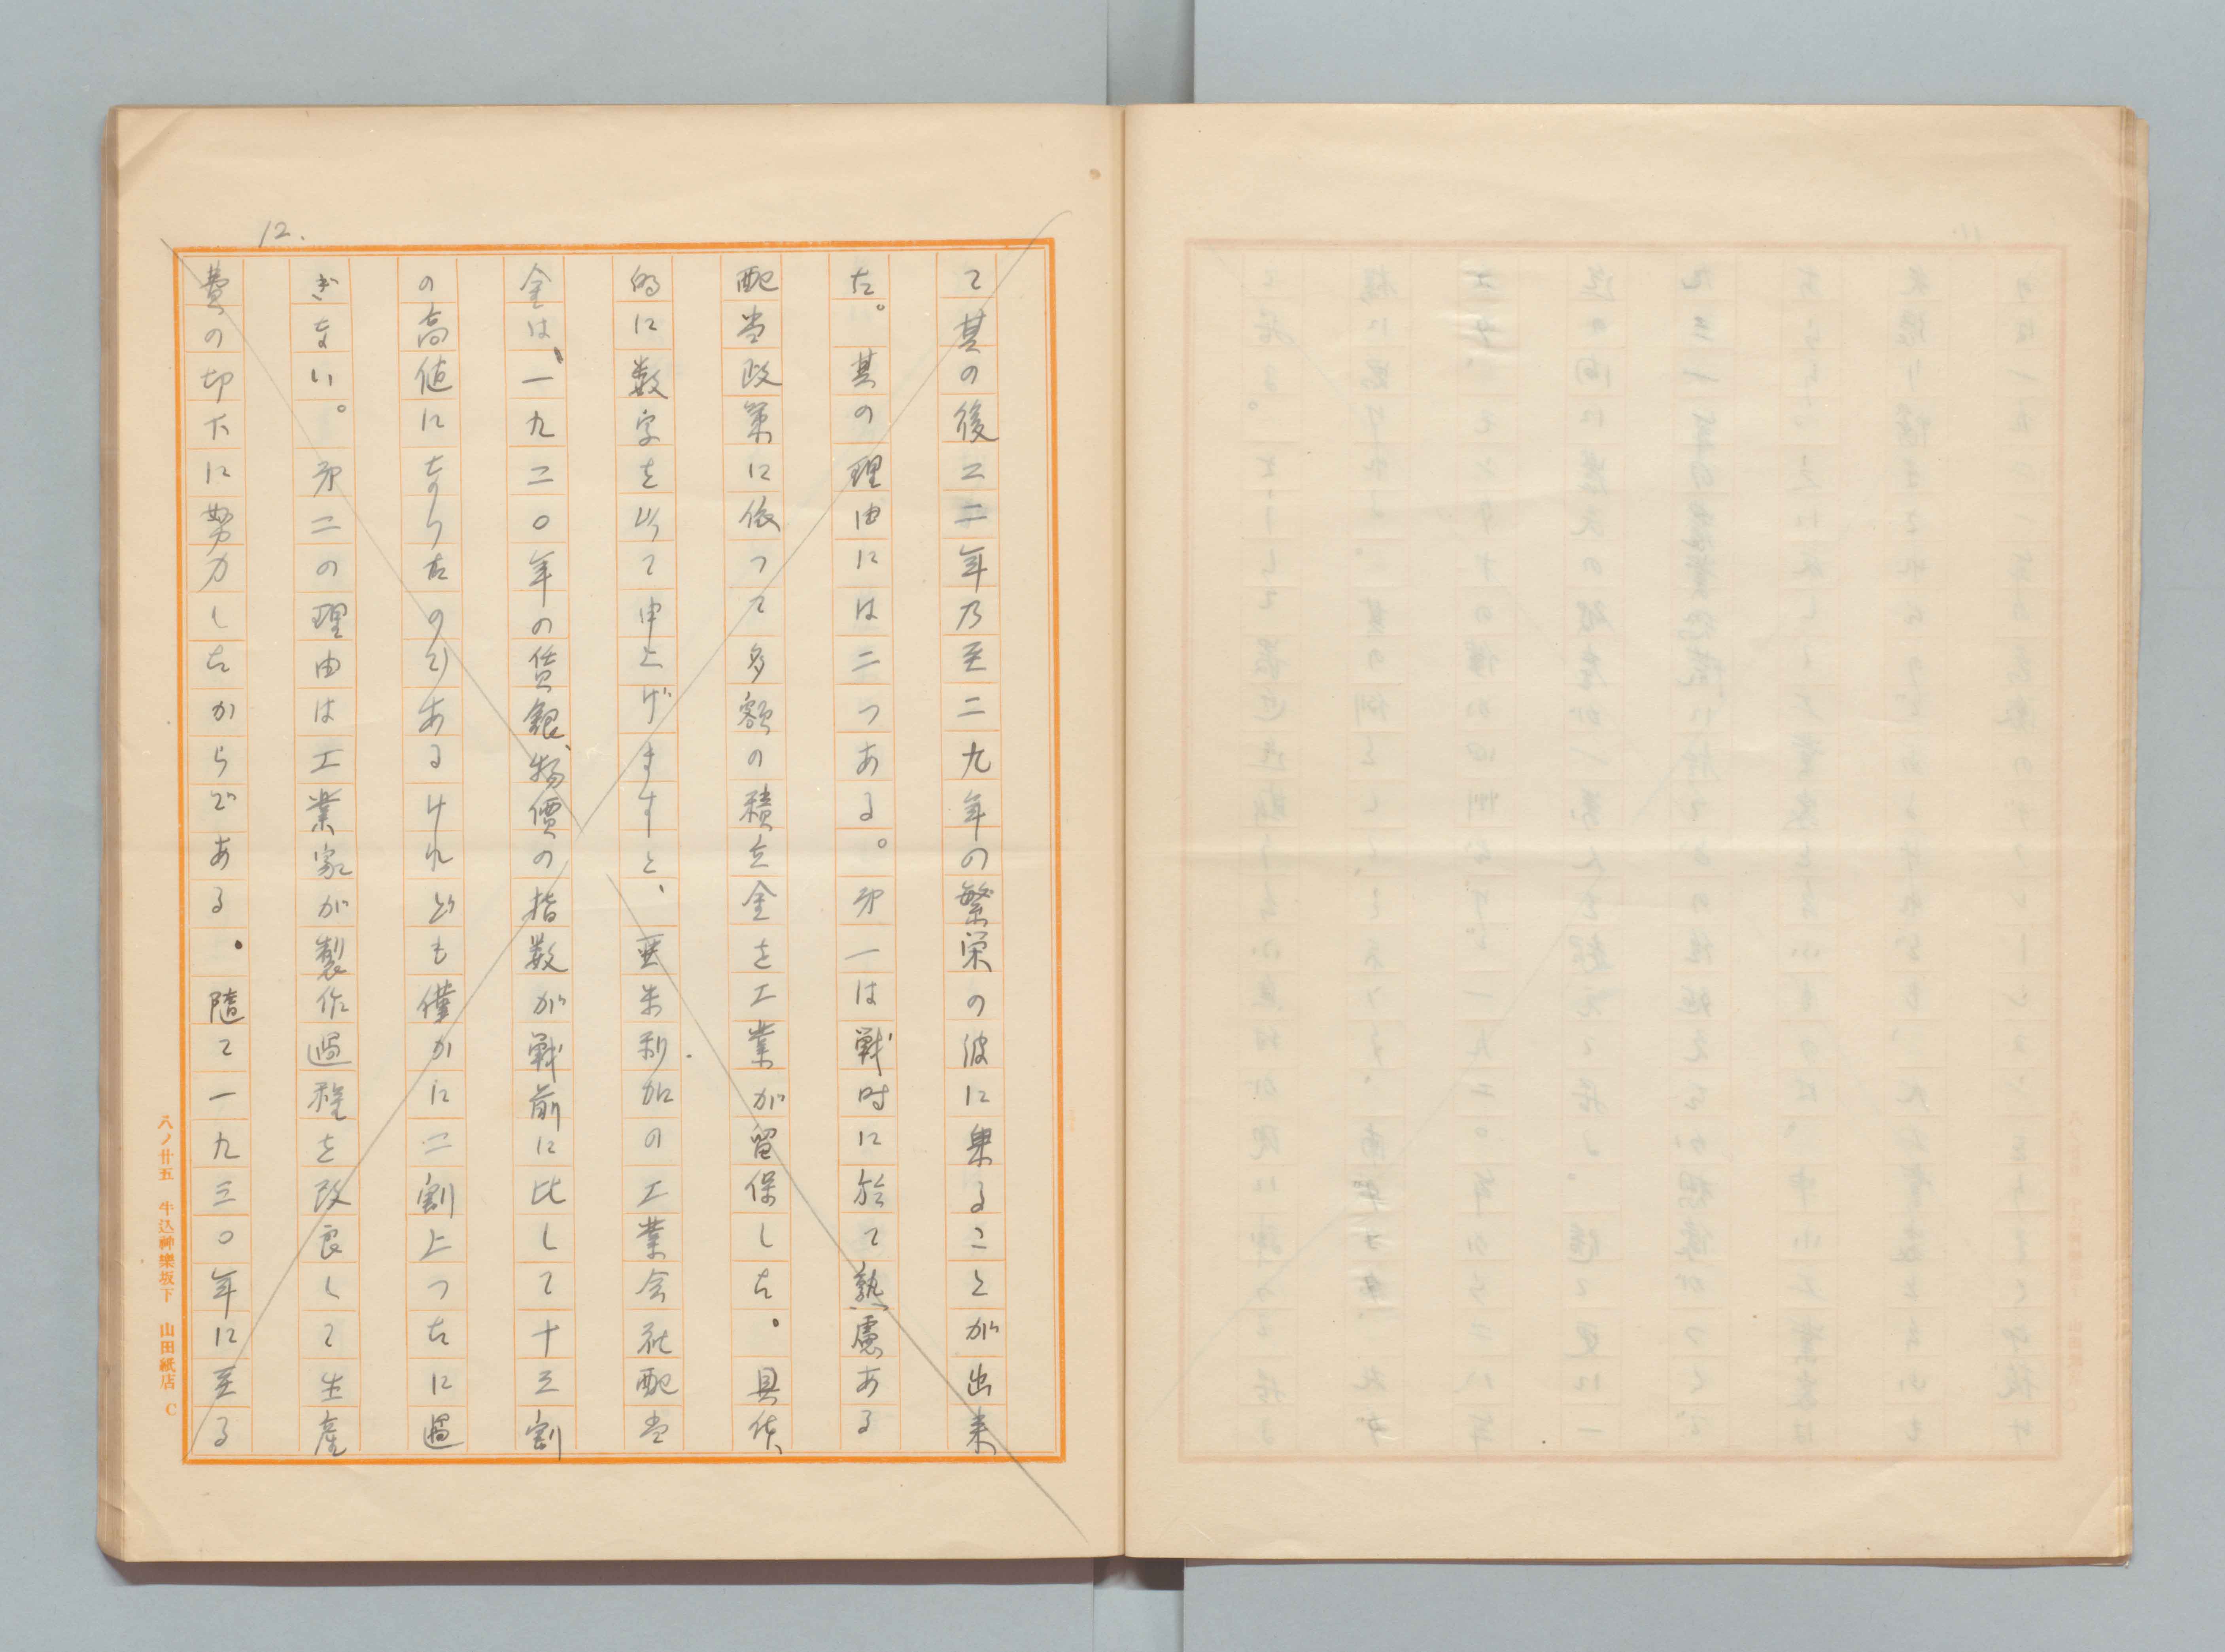 12.
て其の後二二年乃至二九年の繁栄の波に乗ることが出来
た。其の理由には二つある。第一は戦時に於て熟慮ある
配当政策に依つて多額の積立金を工業が留保した。具体
的に数字を以て申上げますと、亜米利加の工業会社配当
金は、一九二〇年の賃銀、物價の指数が戦前に比して十三割
の高値になりたのであるけれども僅かに二割上つたに過
ぎない。第二の理由は工業家が製作過程を改良して生産
費の切下に努力したからである。随て一九三〇年に至る
八ノ廿五 牛込神樂坂下 山田紙店 C